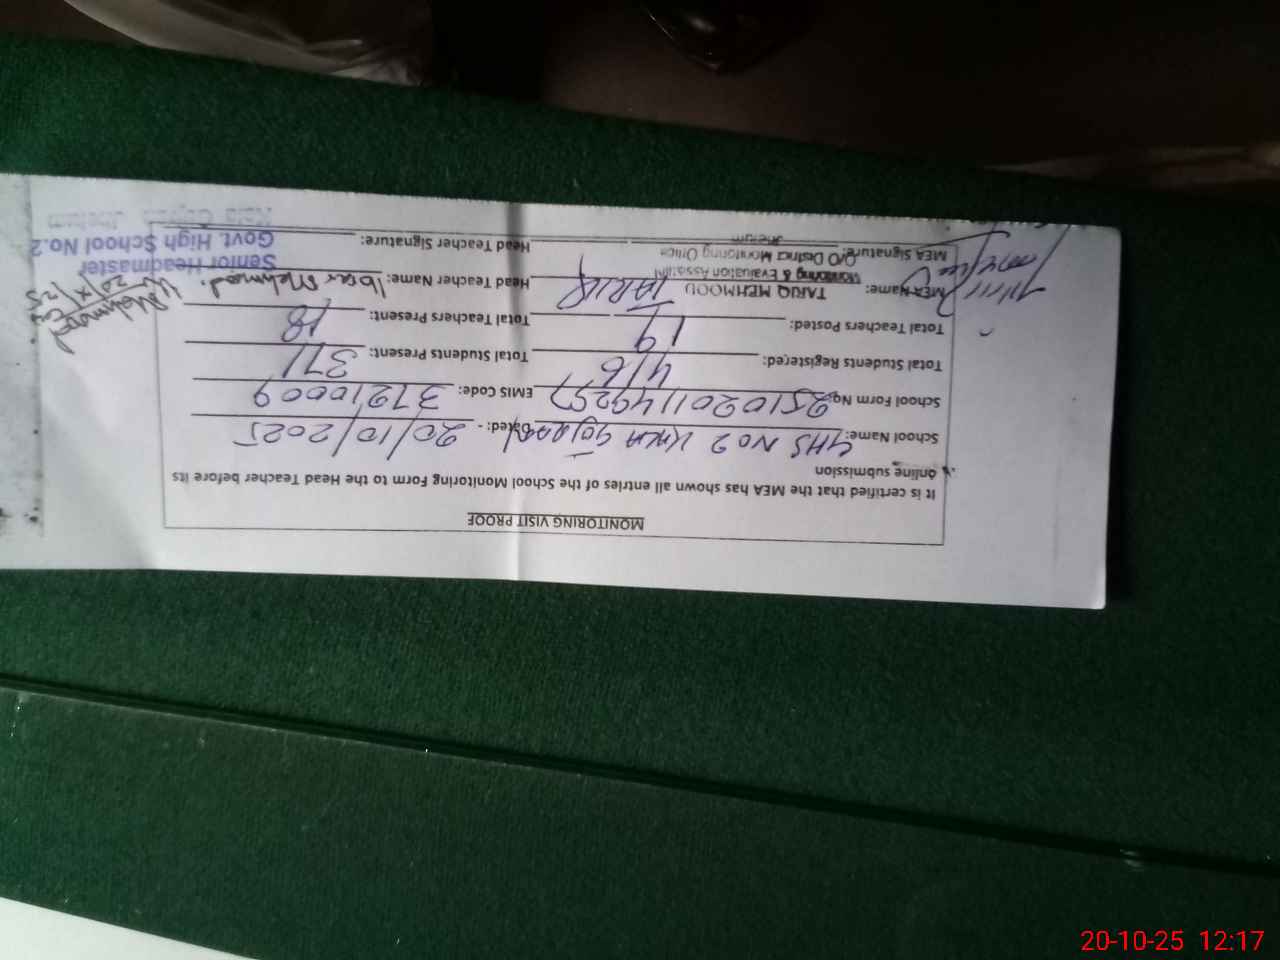 MONITORING VISIT PROOF
It is certified that the MEA has shown all entries of the School Monitoring Form to the Head Teacher before its
online submission
School Name: GHS NO 2 Dated: - 20/10/2025
School Form No: EMIS Code: 37210009
Total Students Registered: 416 Total Students Present: 371
Total Teachers Posted: 19 Total Teachers Present: 18
MEA Name: TARIQ MEHMOOD TARIQ Head Teacher Name: Mehmood.
Monitoring & Evaluation Assistant
MEA Signature: O/O District Monitoring Office Head Teacher Signature:
Jhelum
Senior Headmaster
Govt. High School No.2
Jhelum
20/X/25
20-10-25 12:17